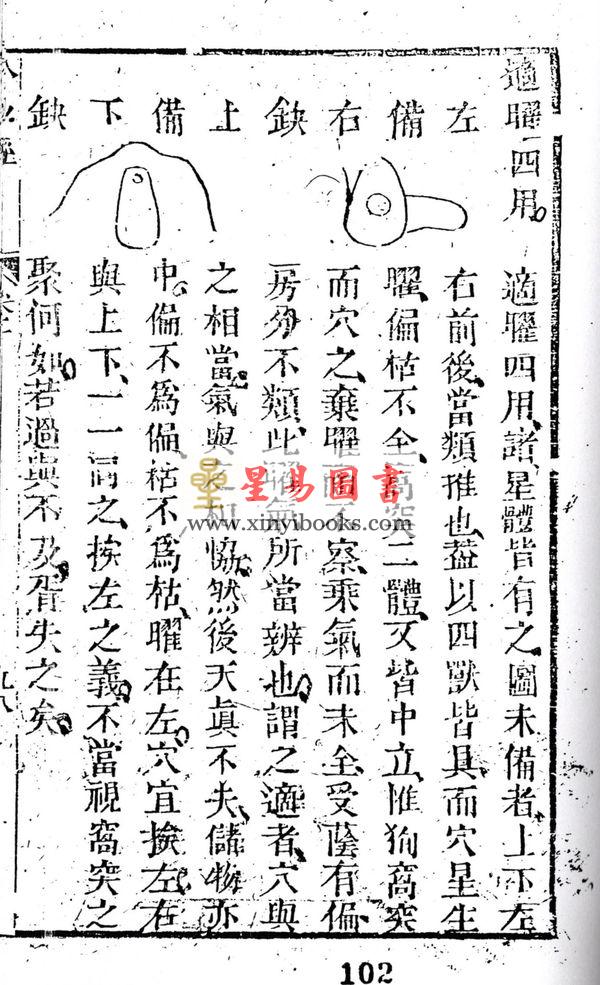 適曜四用 適曜四用諸星體皆有之圖未備者上下左
左 右前後當類推也葢以四獸皆具而穴星生
備 曜偏枯不全窩突二體又皆中立惟狥窩突
右 而穴之棄曜而不察乘氣而未全受蔭有偏
缺 房分不類此曜氣所當辨也謂之適者穴與
上 之相當氣與相恊然後天眞不失儲物亦
備 中偏不爲偏枯不爲枯曜在左穴宜挨左右
下 與上下一一同之挨左之義不當視窩突之
缺 聚何如若過與不及胥失之矣
星易圖書
www.xinyibooks.com
102